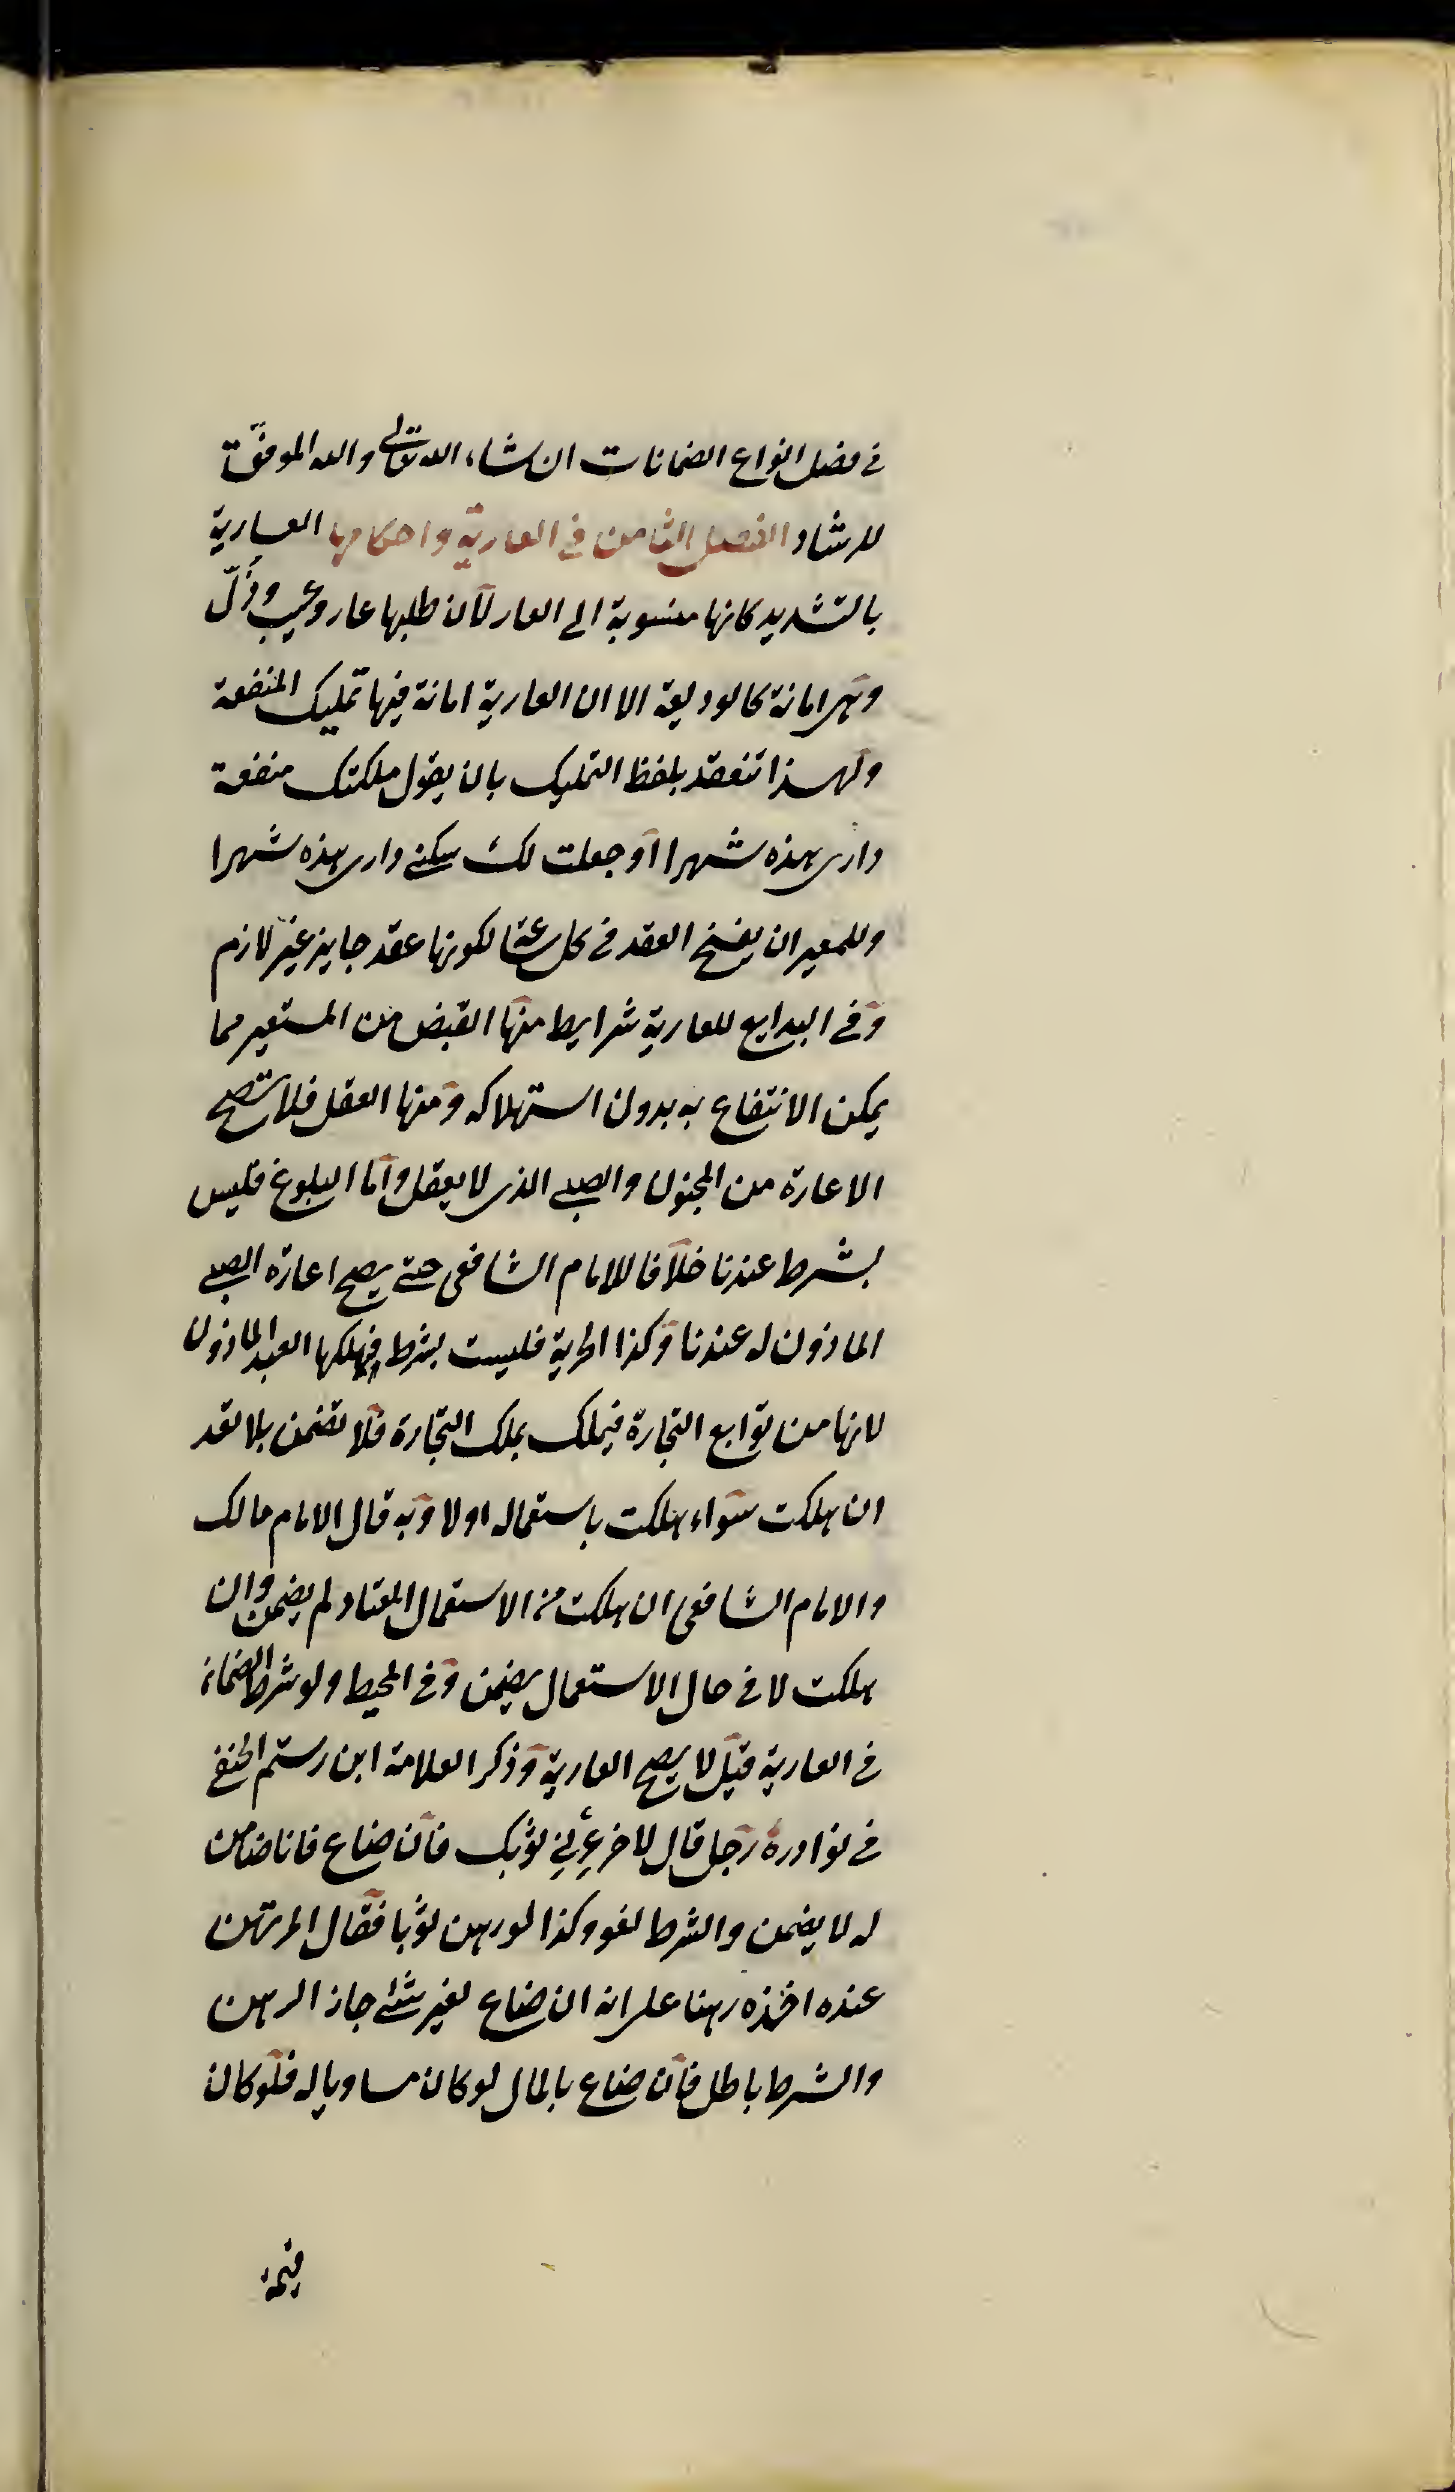 في فصل انواع الضمانات ان شاء الله تعالى والله الموفق
للرشاد الفصل الثامن في العارية واحكامها العارية
بالتشديد كانها منسوبة الى العار لان طلبها عار وعيب وذل
وهي امانة كالوديعة الا ان العارية امانة فيها تمليك المنفعة
ولهذا تنعقد بلفظ التمليك بان يقول ملكتك منفعة
داري هذه شهرا او جعلت لك سكنى داري هذه شهرا
وللمعير ان يفسخ العقد في كل ساعة لكونها عقد جايز غير لازم
وفي البدايع للعارية شرايط منها القبض من المستعير مما
يمكن الانتفاع به بدون استهلاكه ومنها العقل فلا تصح
الاعارة من المجنون والصبي الذي لا يعقل واما البلوغ فليس
بشرط عندنا خلافا للامام الشافعي حتى يصح اعارة الصبي
الماذون له عندنا وكذا الحرية فليست بشرط فيملكها العبد الماذون
لانها من توابع التجارة فيملك بملك التجارة فلا تضمن بلا تعد
ان هلكت سواء هلكت باستعماله اولا وبه قال الامام مالك
والامام الشافعي ان هلكت من الاستعمال المعتاد لم يضمن وان
هلكت لا في حال الاستعمال يضمن وفي المحيط ولو شرط الضمان
في العارية قيل لا يصح العارية وذكر العلامة ابن رستم الحنفي
في نوادره رجل قال لاخر اعرني ثوبك فان ضاع فانا ضامن
له لا يضمن والشرط لغو وكذا لو رهن ثوبا فقال المرتهن
عنده اخذه رهنا على انه ان ضاع بغير شئ جاز الرهن
والشرط باطل فان ضاع بالمال لو كان مساويا له فلو كان